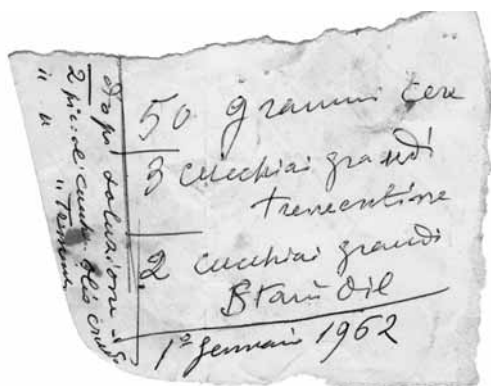 50 grammi cera
3 cucchiai grandi
trementina
2 cucchiai grandi
Stand Oil
1º gennaio 1962
dopo soluzione
2 piccoli cucch. olio crudo
" "